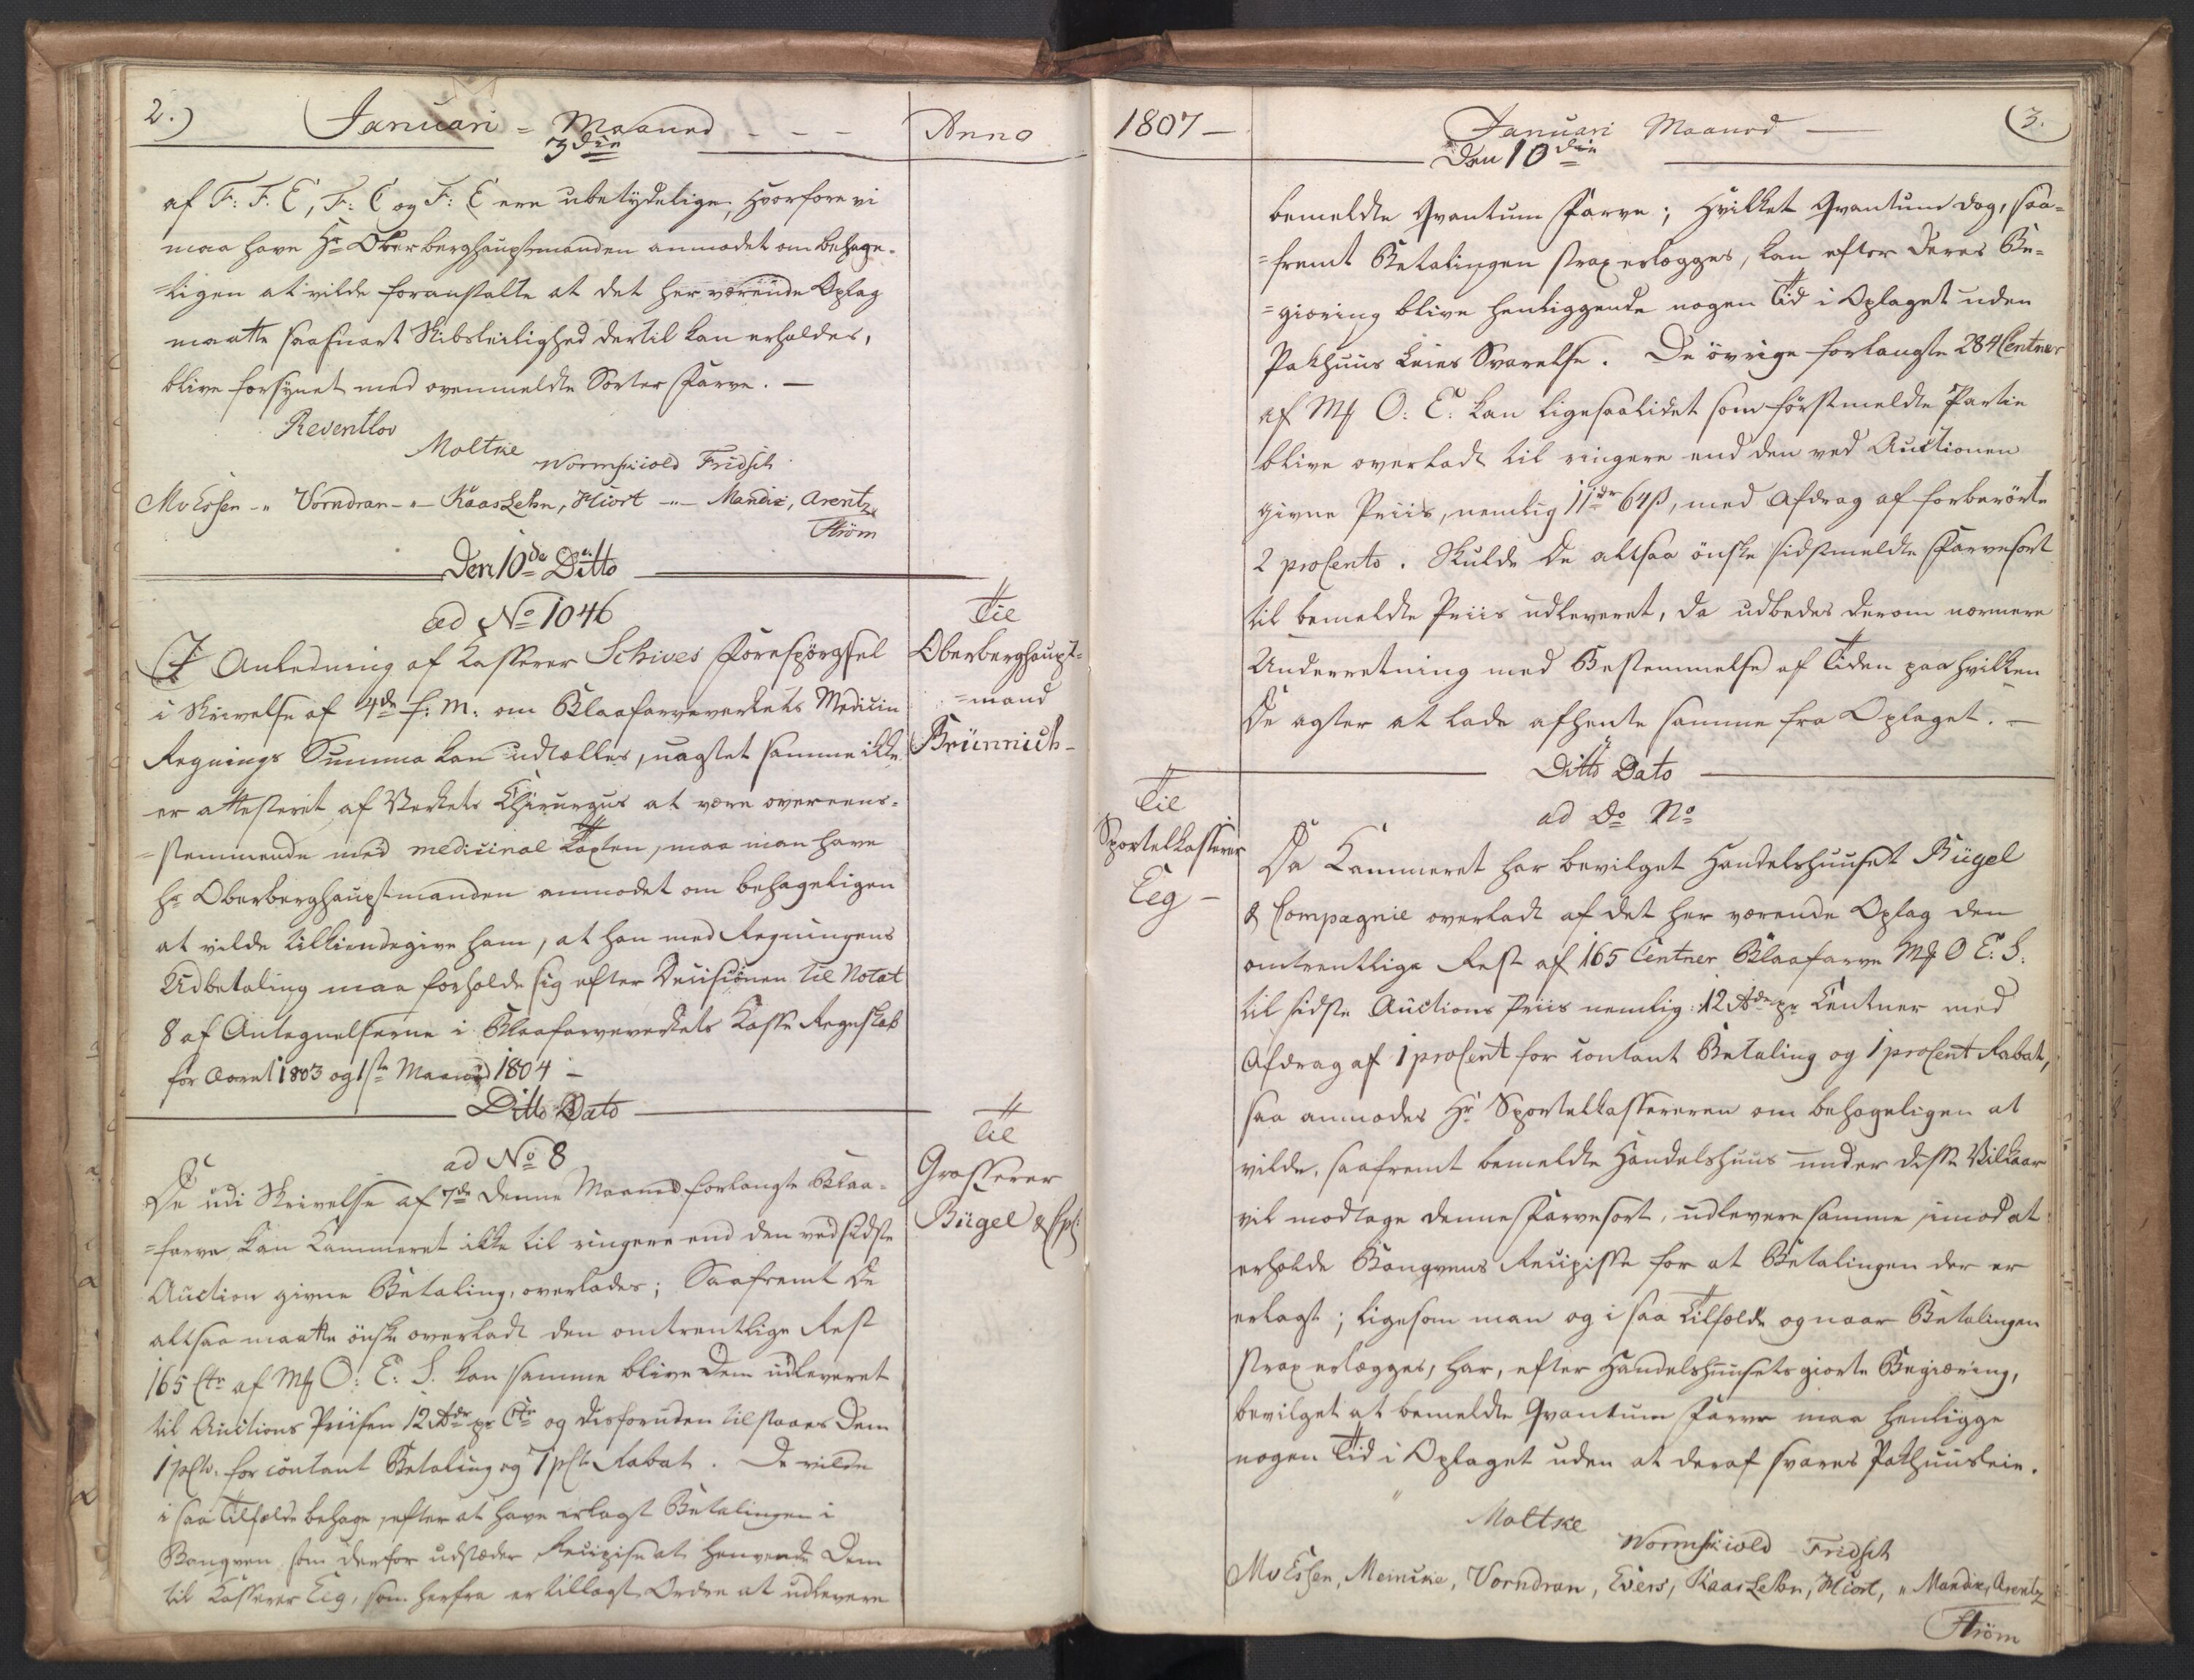 2.)
Januari = Maaned - - -
Anno
3die
af F: F. C, F: C og F: E ere ubetydelige, hvorfore vi
maa have Hr Oberberghauptmanden anmodet om behage-
=ligen at vilde foranstalte at det her værende Oplag
maatte saasnart Skibsleilighed dertil kan erholdes,
blive forsynet med ovenmeldte Sorter Farve. —
Reventlov
Moltke
Wormskiold Fridsch
MvEssen -" Vorndran -"- KaasLehn, Hiort -"- Mandix, Arentz
Strøm
Den 10de Ditto
ad No 1046
I Anledning af Kasserer Schives Forespørgsel
i Skrivelse af 4de f: M: om Blaafarveverkets Medicin
Regnings Summa kan udtælles, uagtet samme ikke
er attesteret af Verkets Chirurgus at være overeens-
=stemmende med medicinal Taxten, maa man have
Hr Oberberghauptmanden anmodet om behageligen
at vilde tilkiendegive ham, at han med Regningens
Udbetaling maa forholde sig efter Decisionen til Notat
8 af Antegnelserne i Blaafarveverkets Kasse Regnskab
for Aaret 1803 og 1ste Maaned 1804 —
Til
Oberberghaupt-
=mand
Brünnich -
Ditto Dato
ad No 8
De udi Skrivelse af 7de denne Maaned forlangte Blaa-
=farve kan Kammeret ikke til ringere end den ved sidste
Auction givne Betaling, overlades; Saafremt De
altsaa maatte ønske overladt den omtrentlige Rest
165 Ctr af Mk O: E: S. kan samme blive Dem udleveret
til Auctions Priisen 12 Rdr pr Ctr og desforuden tilstaaes Dem
1 pCto. for contant Betaling og 1 pCto Rabat. De vilde
i saa Tilfælde behage, efter at have erlagt Betalingen i
Banqven, som derfor udstæder Recipisse at henvende Dem
til Kasserer Eeg, som herfra er tillagt Ordre at udlevere
Til
Grosserer
Bügel & Cp:
1807 —
Januari Maaned —
(3.
Den 10die
bemeldte Qvantum Farve; Hvilket Qvantum dog, saa-
=fremt Betalingen strax erlægges, kan efter Deres Be-
=giering blive henliggende nogen Tid i Oplaget uden
Pakhuus Leies Svarelse. De øvrige forlangte 284 Centner
af Mk O: C: kan ligesaalidet som førstmeldte Partie
blive overladt til ringere end den ved Auctionen
givne Priis, nemlig 11 rdr 64 ß, med Afdrag af forberørte
2 proCento. Skulde De altsaa ønske sidstmeldte Farvesort
til bemeldte Priis udleveret, da udbedes derom nærmere
Underretning med Bestemmelse af Tiden paa hvilken
De agter at lade afhente samme fra Oplaget. —
Ditto Dato
ad Do No
Til
Sportelkasserer
Eeg —
Da Kammeret har bevilget Handelshuuset Bügel
& Compagnie overladt af det her værende Oplag den
omtrentlige Rest af 165 Centner Blaafarve Mk O E: S:
til sidste Auctions Priis nemlig: 12 Rdr pr Centner med
Afdrag af 1 proCent for contant Betaling og 1 proCent Rabat,
saa anmodes Hr Sportelkassereren om behageligen at
vilde, saafremt bemeldte Handelshuus under disse Vilkaar
vil modtage denne Farvesort, udlevere samme imod at
erholde Banqvens Recipisse for at Betalingen der er
erlagt; ligesom man og i saa Tilfælde og naar Betalingen
strax erlægges, har, efter Handelshuusets giorte Begiæring,
bevilget at bemeldte Qvantum Farve maa henligge
nogen Tid i Oplaget uden at deraf svares Pakhuusleie.
Moltke
Wormskiold Fridsch
MvEssen, Meincke, Vorndran, Evers, KaasLehn, Hiort, " Mandix, Arentz
Strøm